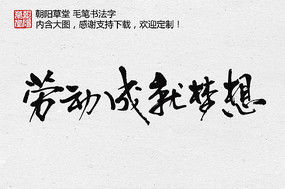 朝阳草堂 毛笔书法字
内含大图，感谢支持下载，欢迎定制！
劳动成就梦想